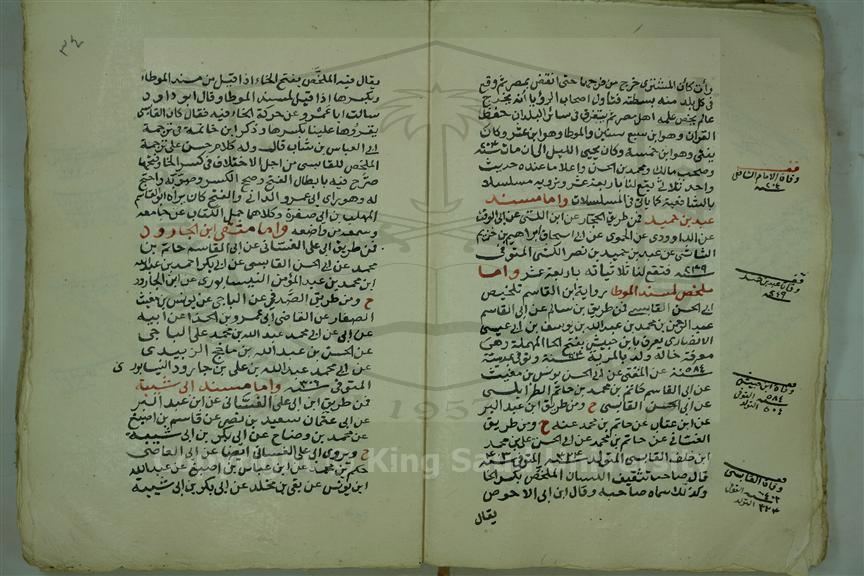 وأن كان المشترى خرج من فرجها حتى انقض بمصر ثم وقع
في كل بلد منه بسطة فتاول اصحاب الرؤيا أنه يخرج
عالم يخص علمه اهل مصر ثم يتفرق في سائر البلدان حفظ
القران وهو ابن سبع سنين والموطا وهو ابن عشر وكان
يفتي وهو ابن خمسة وكان يحيى الليل الى ان مات سنة ٢٠٤
وصحب مالك ومحمد بن الحسن واعلا ما عنده حديث
واحد ثلاثي يقع لنا باربعة عشر ونرويه مسلسلا
بالشافعية كما ياتي في المسلسلات واما مسند
عبد بن حميد فمن طريق الحجار عن ابن اللتي عن ابي الوقت
عن الداوودي عن الحموي عن ابي اسحاق ابراهيم بن خزيم
الشاشي عن عبد بن حميد بن نصر الكشي المتوفى
سنة ٢٤٩ فتقع لنا ثلاثياته باربعة عشر واما
ملخص لمسند الموطا برواية ابن القاسم تلخيص
ابي الحسن القابسي فمن طريق بن سالم عن ابي القاسم
عبد الرحمن بن محمد بن عبد الله بن يوسف بن ابي عيسى
الانصاري يعرف بابن حبيش بفتح الحا المهملة وهي
معرفة خاله ولد بالمرية سنة ٥٠٤ وتوفي بمرسية
سنة ٥٨٤ عن المفتي عن ابي الحسن يونس بن مغيث
عن ابي القاسم حاتم بن محمد بن حاتم الطرابلسي
عن ابي الحسن القابسي ح ومن طريق ابن عبد البر
عن ابن عتاب عن حاتم بن محمد عنه ح ومن طريق
الغساني عن حاتم بن محمد عن ابي الحسن علي بن محمد
ابن خلف القابسي المتولد سنة ٣٢٤ المتوفى سنة ٤٠٣
قال صاحب تثقيف اللسان الملخص بكسر الخا
وكذلك سماه صاحبه وقال ابن ابي الاحوص
يقال
وفاة الامام الشافعي
سنة ٢٠٤
وفاة عبد بن حميد
سنة ٢٤٩
وفاة ابن حبيش
سنة ٥٨٤ المتوفى
٥٠٤ التولد
وفاة القابسي
سنة ٤٠٣ المتوفى
٣٢٤ التولد
٣٤
يقال فيه الملخص بفتح الخاء اذا قيل من مسند الموطاء
وبكسرها اذا قيل لمسند الموطا وقال ابو داود
سالت ابا عمرو عن حركة الخاء فيه فقال كان القابسي
يقرؤها علينا بكسرها وذكر ابن خاتمة في ترجمة
ابي العباس بن شاب قالت وله كلام حسن على ترجمة
الملخص للقابسي من اجل الاختلاف في كسر الخا وفتحها
صرح فيه بابطال الفتح وصحح الكسر وصوبه واحتج
له وهو راى ابي عمرو الداني والفتح كان يراه ابو القاسم
المهلب بن ابي صفرة وكلاهما حمل الكتاب عن جامعه
وسمعه من واضعه واما منتقى ابن الجارود
فمن طريق ابي علي الغساني عن ابي القاسم حاتم بن
محمد عن ابي الحسن القابسي عن ابي بكر احمد بن عبد الله
ابن محمد بن عبد المؤمن النيسابوري عن ابن الجارود
ح ومن طريق الصدفي عن الباجي عن يونس بن مغيث
الصفار عن القاضي ابي عمرو بن الحذا عن ابيه
عن ابي محمد عبد الله بن محمد بن علي الباجي
عن الحسن بن عبد الله بن مذحج الزبيدي
عن ابي محمد عبد الله بن علي بن جارود النيسابوري
المتوفى سنة ٣٠٦ واما مسند ابي شيبة
فمن طريق ابي علي الغساني عن ابن عبد البر
عن ابي عثمان سعيد بن نصر عن قاسم بن اصبغ
عن محمد بن وضاح عن ابي بكر بن ابي شيبة
ح ويروى ابي علي الغساني ايضا عن ابي العاصي
حكم بن محمد عن ابن عباس بن اصبغ عن عبد الله
ابن يونس عن بقي بن مخلد عن ابي بكر بن ابي شيبة
King Saud University
1957